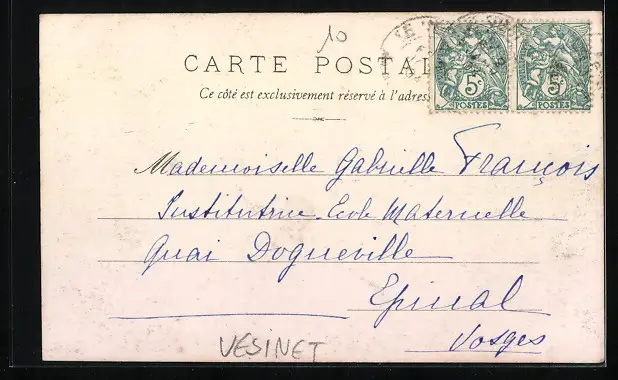 10
CARTE POSTAL
Ce côté est exclusivement réservé à l'adres
5c POSTES 5c POSTES
Mademoiselle Gabrielle François
Institutrice Ecole Maternelle
Quai Dogneville
Epinal
Vosges
VESINET